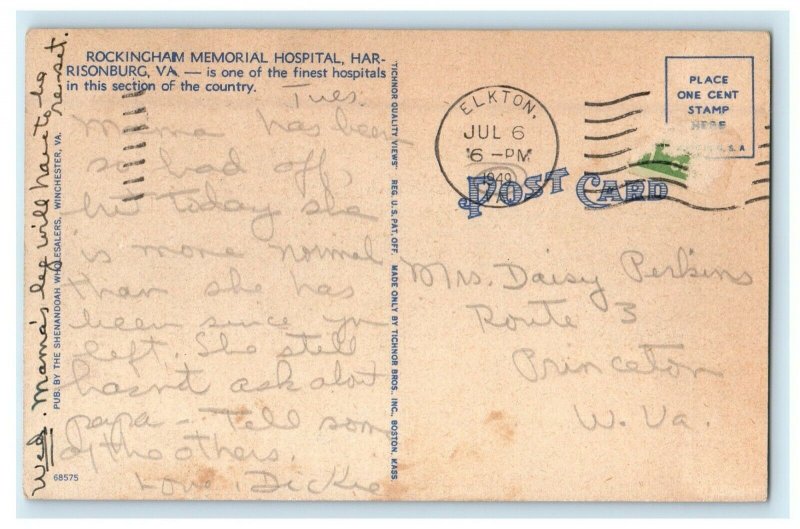 ROCKINGHAM MEMORIAL HOSPITAL, HAR-
RISONBURG, VA. — is one of the finest hospitals
in this section of the country.
Tues.
Mama has been
so bad off,
but today she
is more normal
than she has
been since you
left. She still
hasn't ask about
papa - Tell some
of the others.
Love, Dickie
Wed. Mama's leg will have to be
re-set.
PUB. BY THE SHENANDOAH WHOLESALERS, WINCHESTER, VA.
68575
"TICHNOR QUALITY VIEWS" REG. U. S. PAT. OFF. MADE ONLY BY TICHNOR BROS. INC., BOSTON, MASS.
ELKTON,
JUL 6
6-PM
1949
POST CARD
PLACE
ONE CENT
STAMP
HERE
U. S. A
Mrs. Daisy Perkins
Route 3
Princeton
W. Va.